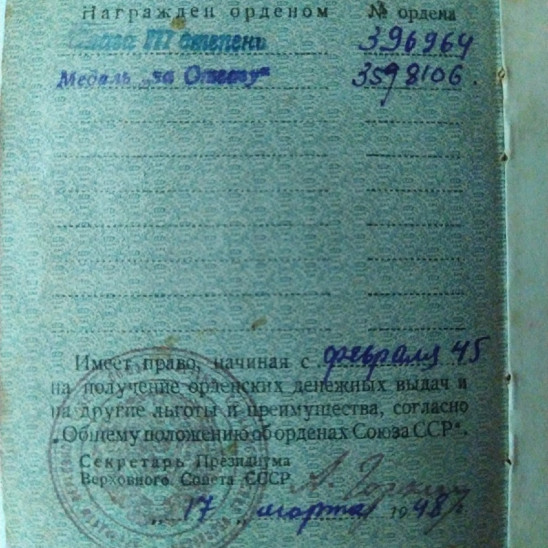 Награжден орденом № ордена
Слава III степени 396964
Медаль „за Отвагу“ 3598106.
Имеет право, начиная с февраля 45
на получение орденских денежных выдач и
на другие льготы и преимущества, согласно
„Общему положению об орденах Союза ССР“.
Секретарь Президиума
Верховного Совета СССР А. Горкин
„17 „ марта 1948г.